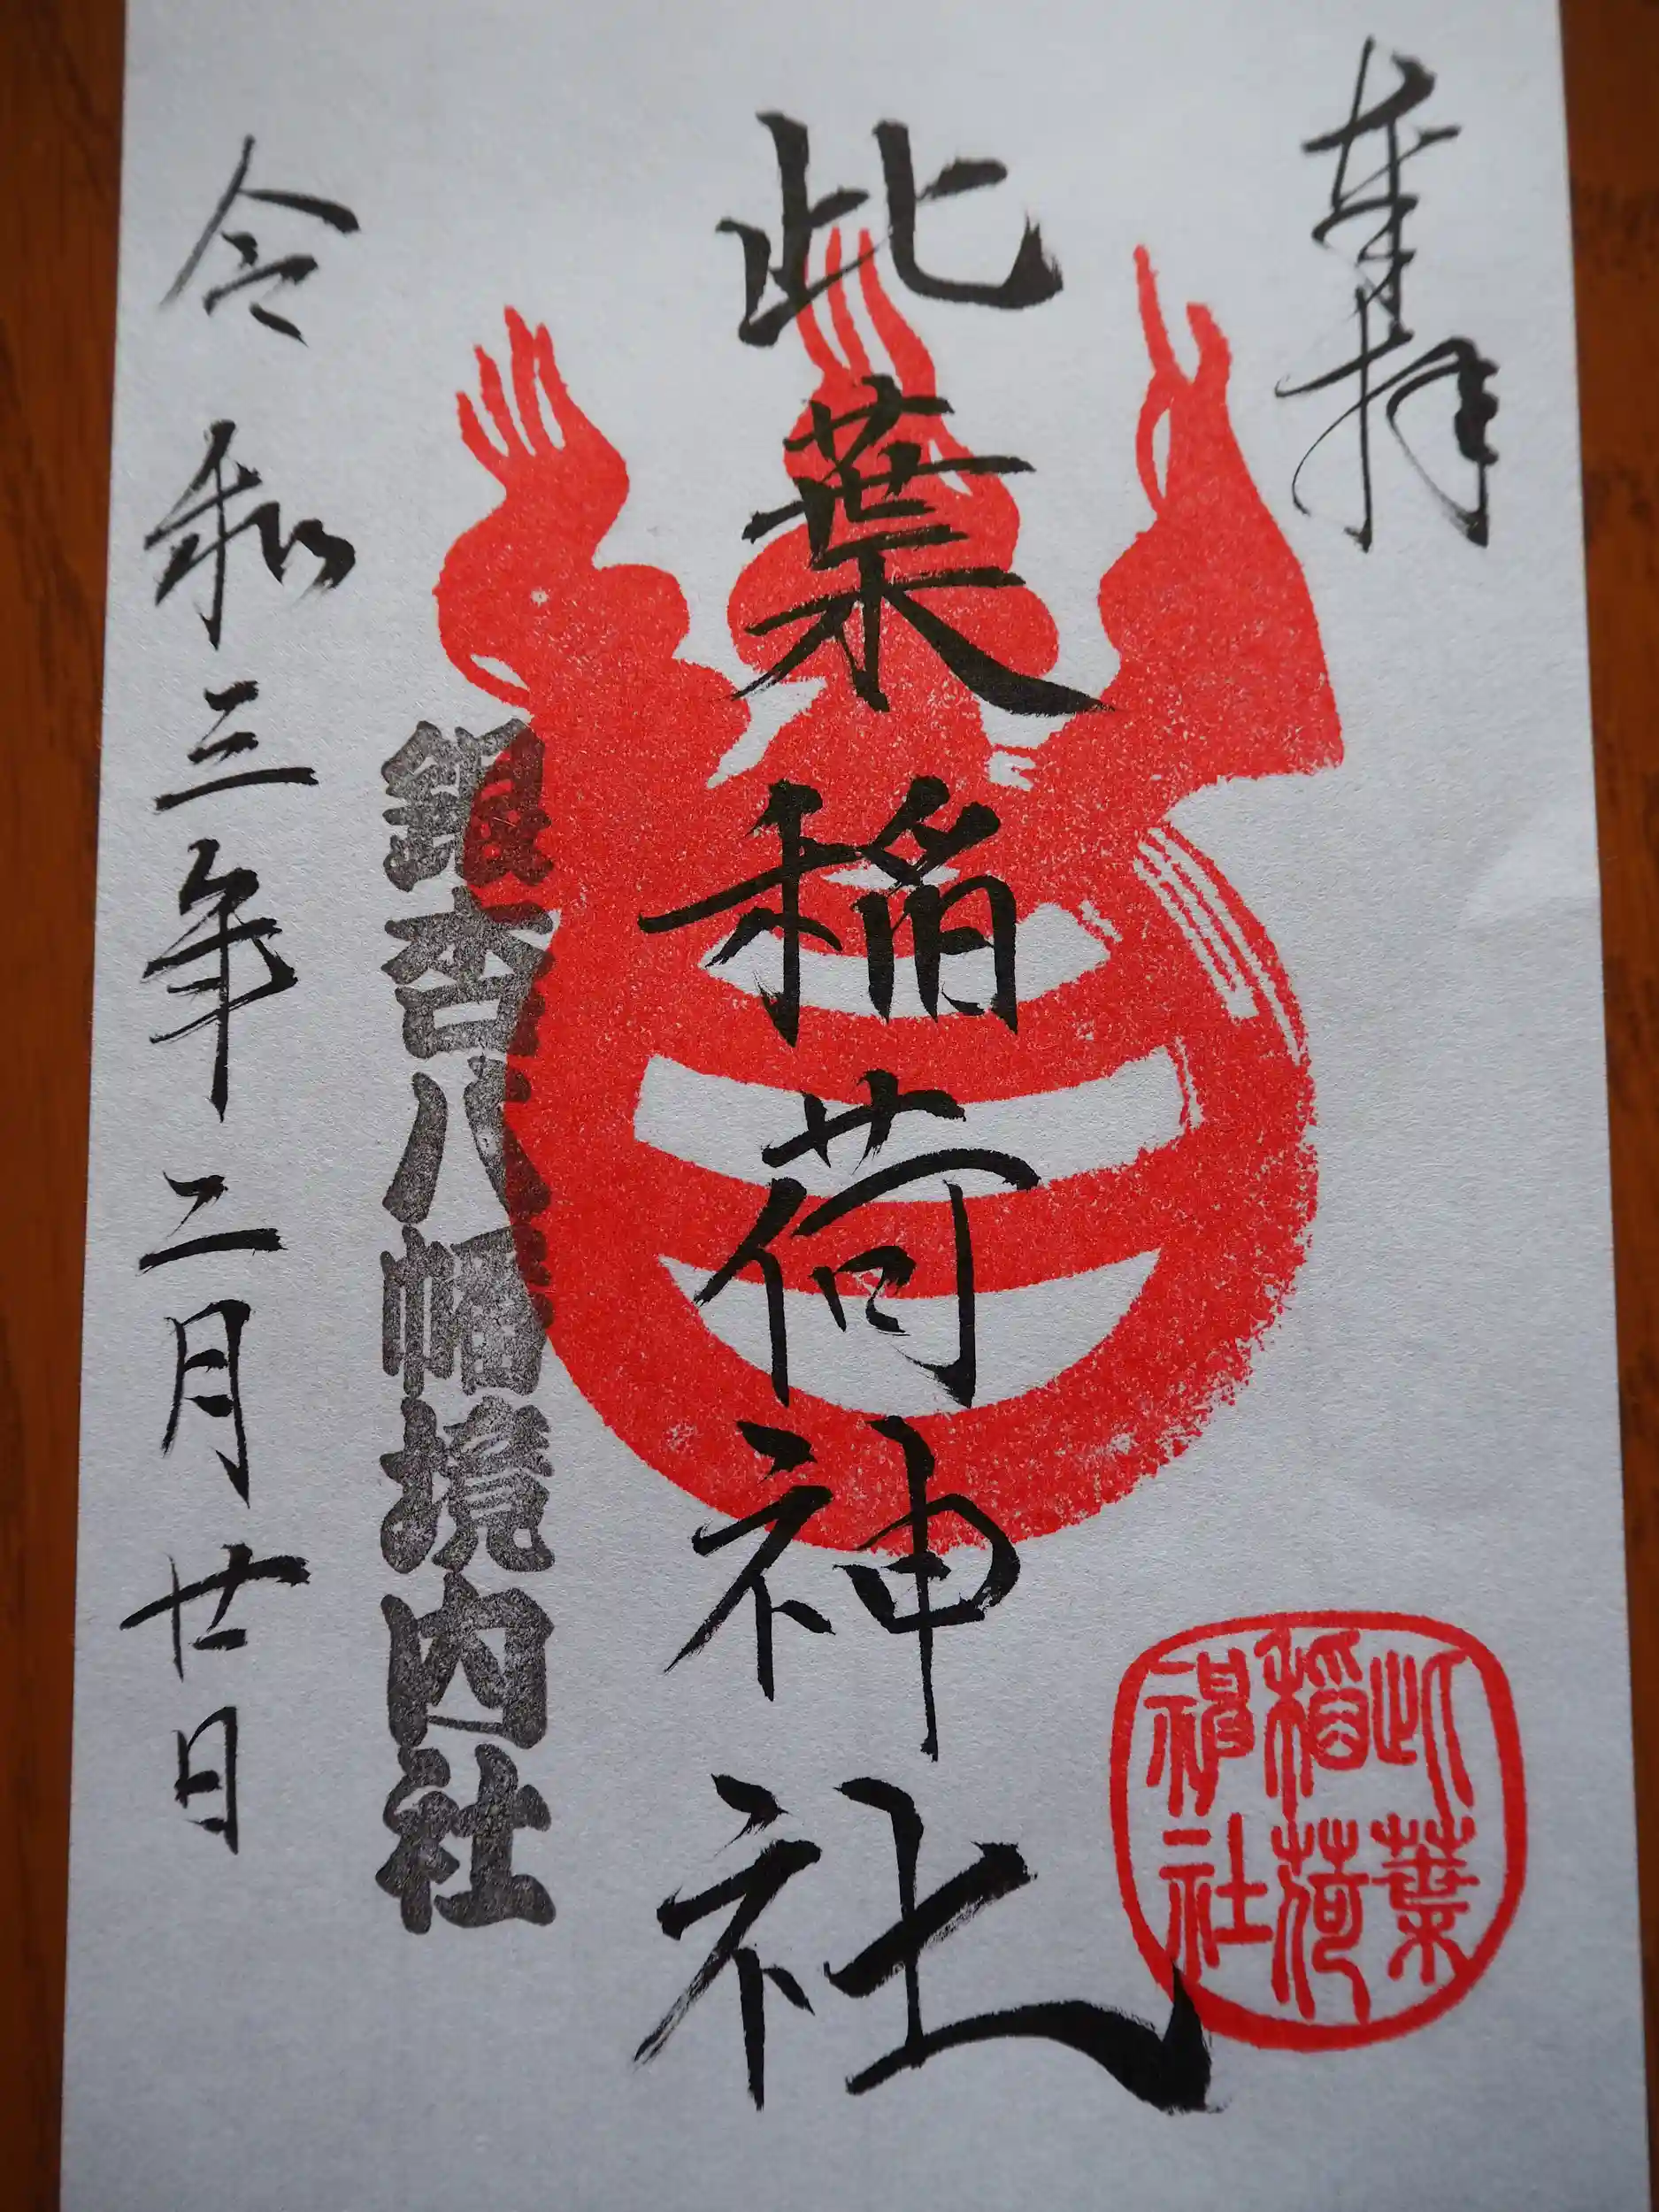 奉拝
此葉稲荷神社
此葉稲荷神社
銀杏八幡境内社
令和三年二月廿日